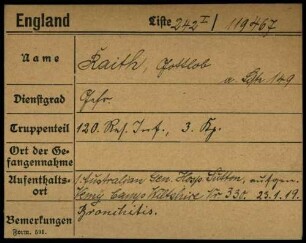 England Liste 242 I / 119467
Name Raith, Gottlob
a.
Dienstgrad Gefr.
Truppenteil 120. Res. Inf., 3. Kp.
Ort der Ge-
fangennahme
Aufenthalts-
ort
1. Australian Gen. Hosp. Sutton, aufgen.
Camp Wiltshire Nr 330. 23.1.19.
Bemerkungen Bronchitis.
Form.